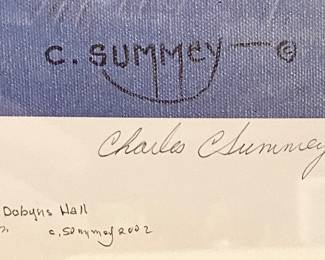 C. SUMMEY ©
Charles C Summey
Dobyns Hall
C. Summey 2002